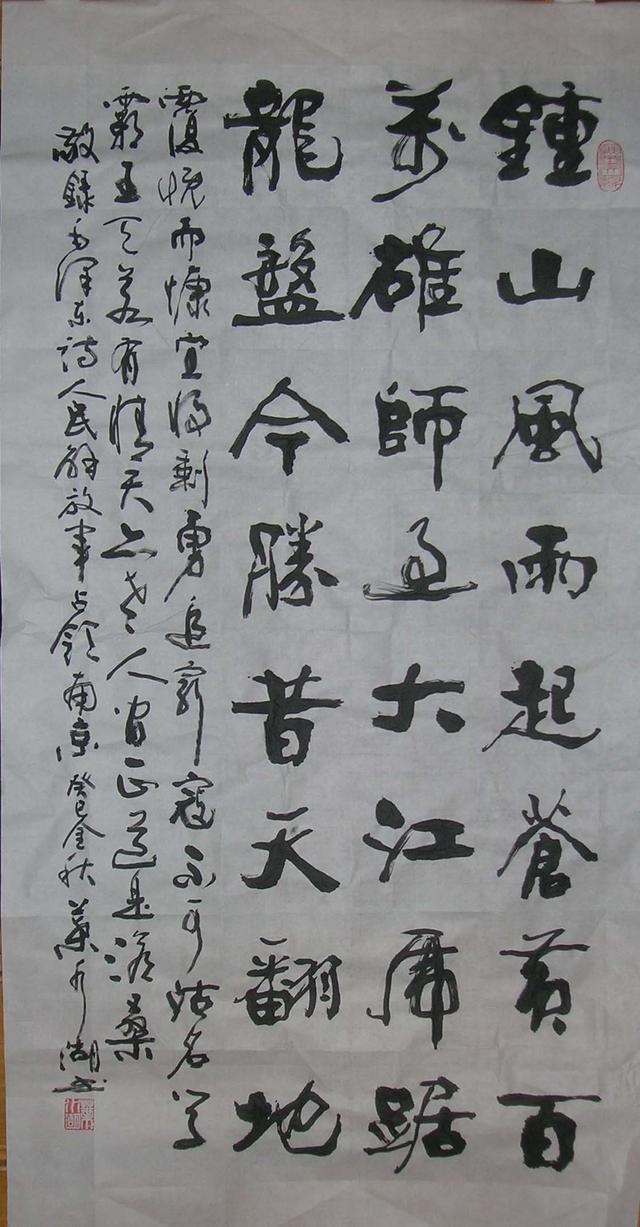 鍾山風雨起蒼黃百
萬雄師過大江虎踞
龍盤今勝昔天翻地
覆慨而慷宜將剩勇追窮寇不可沽名學
霸王天若有情天亦老人間正道是滄桑
敬錄毛澤東詩人民解放軍占領南京癸巳金秋葉湖書